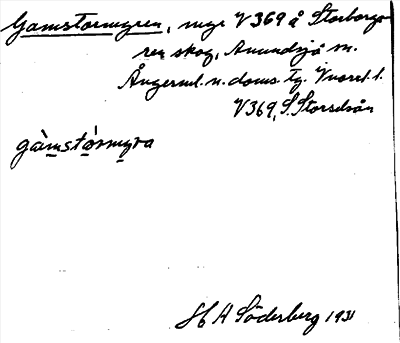 Gamstormyren, myr V 369 å Storborga
ren skog, Anundsjö sn.
Ångerml. n. doms. tg. Vvarel. l.
V 369, S. Storselsån
gàmstórmyra
H A Söderberg 1931